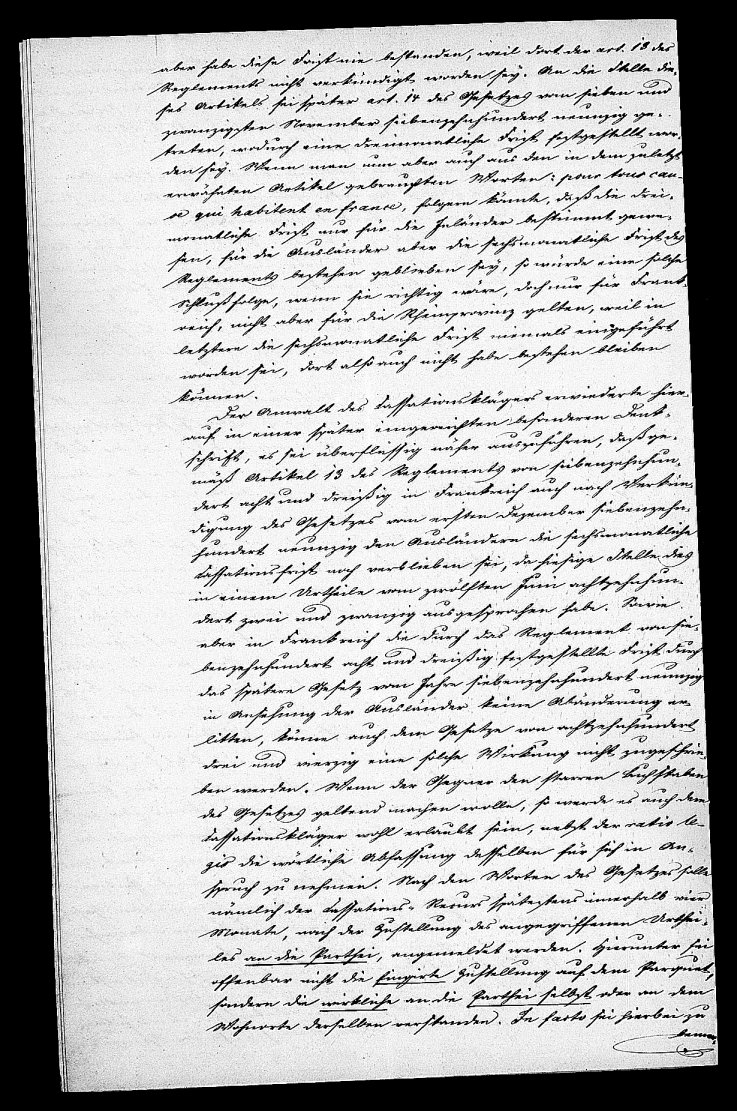 aber habe diese Frist nie bestanden, weil dort der art. 13 des
Reglements nicht verkündigt worden sey. An die Stelle die-
ses Artikels sei später art. 14 des Gesetzes vom sieben und
zwanzigsten November siebenzehnhundert neunzig ge-
treten, wodurch eine dreimonatliche Frist festgestellt wor-
den sey. Wenn man nun aber auch aus den in dem zuletzt
erwähnten Artikel gebrauchten Worten: pour tous ceu-
x qui habitent en france, folgern könnte, daß die drei-
monatliche Frist nur für die Inländer bestimmt gewe-
sen, für die Ausländer aber die sechsmonatliche Frist des
Reglements bestehen geblieben sey, so würde eine solche
Schlußfolge, wenn sie richtig wäre, doch nur für Frank-
reich, nicht aber für die Rheinprovinz gelten, weil in
letztere die sechsmonatliche Frist niemals eingeführt
worden sei, dort also auch nicht habe bestehen bleiben
können.
Der Anwalt des Cassationsklägers erwiederte hier-
auf in einer später eingereichten besonderen Denk-
schrift, es sei überflüssig näher auszuführen, daß ge-
mäß Artikel 13 des Reglements von siebenzehnhun-
dert acht und dreißig in Frankreich auch nach Verkün-
digung des Gesetzes vom ersten Dezember siebenzehn-
hundert neunzig den Ausländern die sechsmonatliche
Cassationsfrist noch verblieben sei, da hiesige Stelle dies
in einem Urtheile vom zwölften Juni achtzehnhun-
dert zwei und zwanzig ausgesprochen habe. Sowie
aber in Frankreich die durch das Reglement von sie-
benzehnhundert acht und dreißig festgestellte Frist durch
das spätere Gesetz vom Jahre siebenzehnhundert neunzig
in Ansehung der Ausländer keine Abänderung er-
litten, könne auch dem Gesetze von achtzehnhundert
drei und vierzig eine solche Wirkung nicht zugeschrie-
ben werden. Wenn der Gegner den starren Buchstaben
des Gesetzes geltend machen wolle, so werde es auch dem
Cassationskläger wohl erlaubt sein, nebst der ratio le-
gis die wörtliche Abfassung desselben für sich in An-
spruch zu nehmen. Nach den Worten des Gesetzes solle
nämlich der Cassations-Recurs spätestens innerhalb vier
Monate, nach der Zustellung des angegriffenen Urthei-
les an die Parthei, angemeldet werden. Hierunter sei
offenbar nicht die fingirte Zustellung auf dem Parquet,
sondern die wirkliche an die Parthei selbst oder an dem
Wohnorte derselben verstanden. In facto sei hierbei zu
bemer-